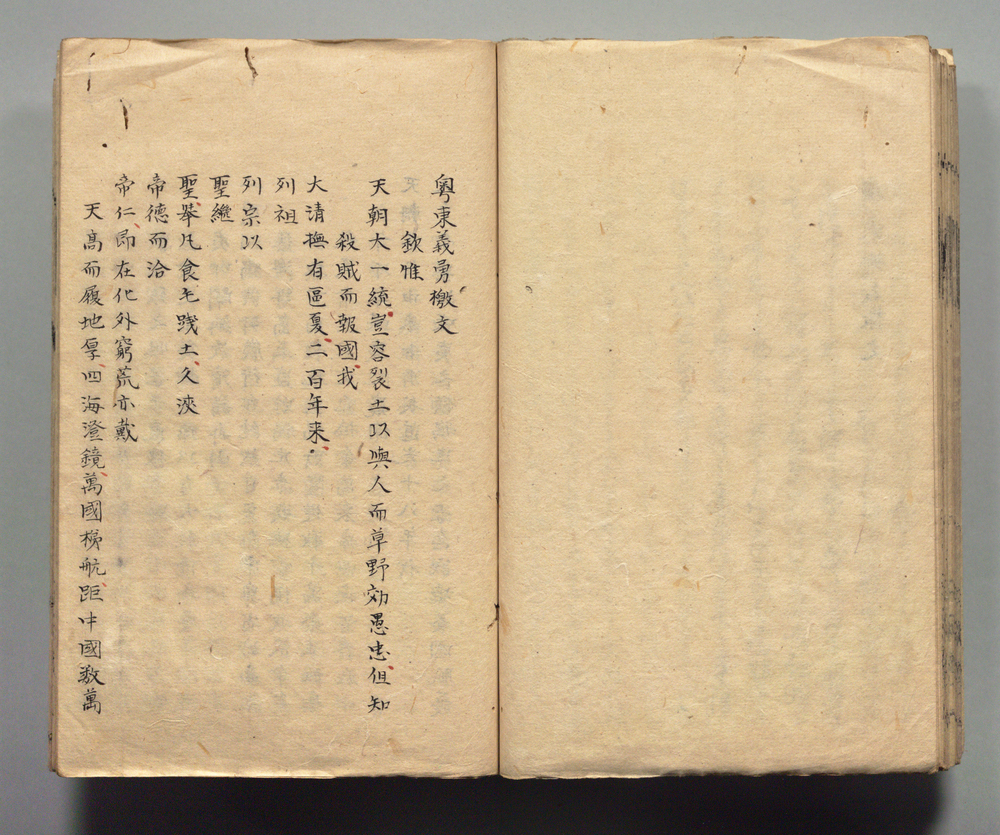 粤東義勇檄文
欽惟
天朝大一統豈容裂土以與人而草野効愚忠但知
殺賊而報國我
大清撫有區夏二百年来
列祖
列宗以
聖繼
聖舉凡食毛踐土久浹
帝德而洽
帝仁即在化外窮荒亦戴
天高而履地厚四海澄鏡萬國梯航距中國数萬